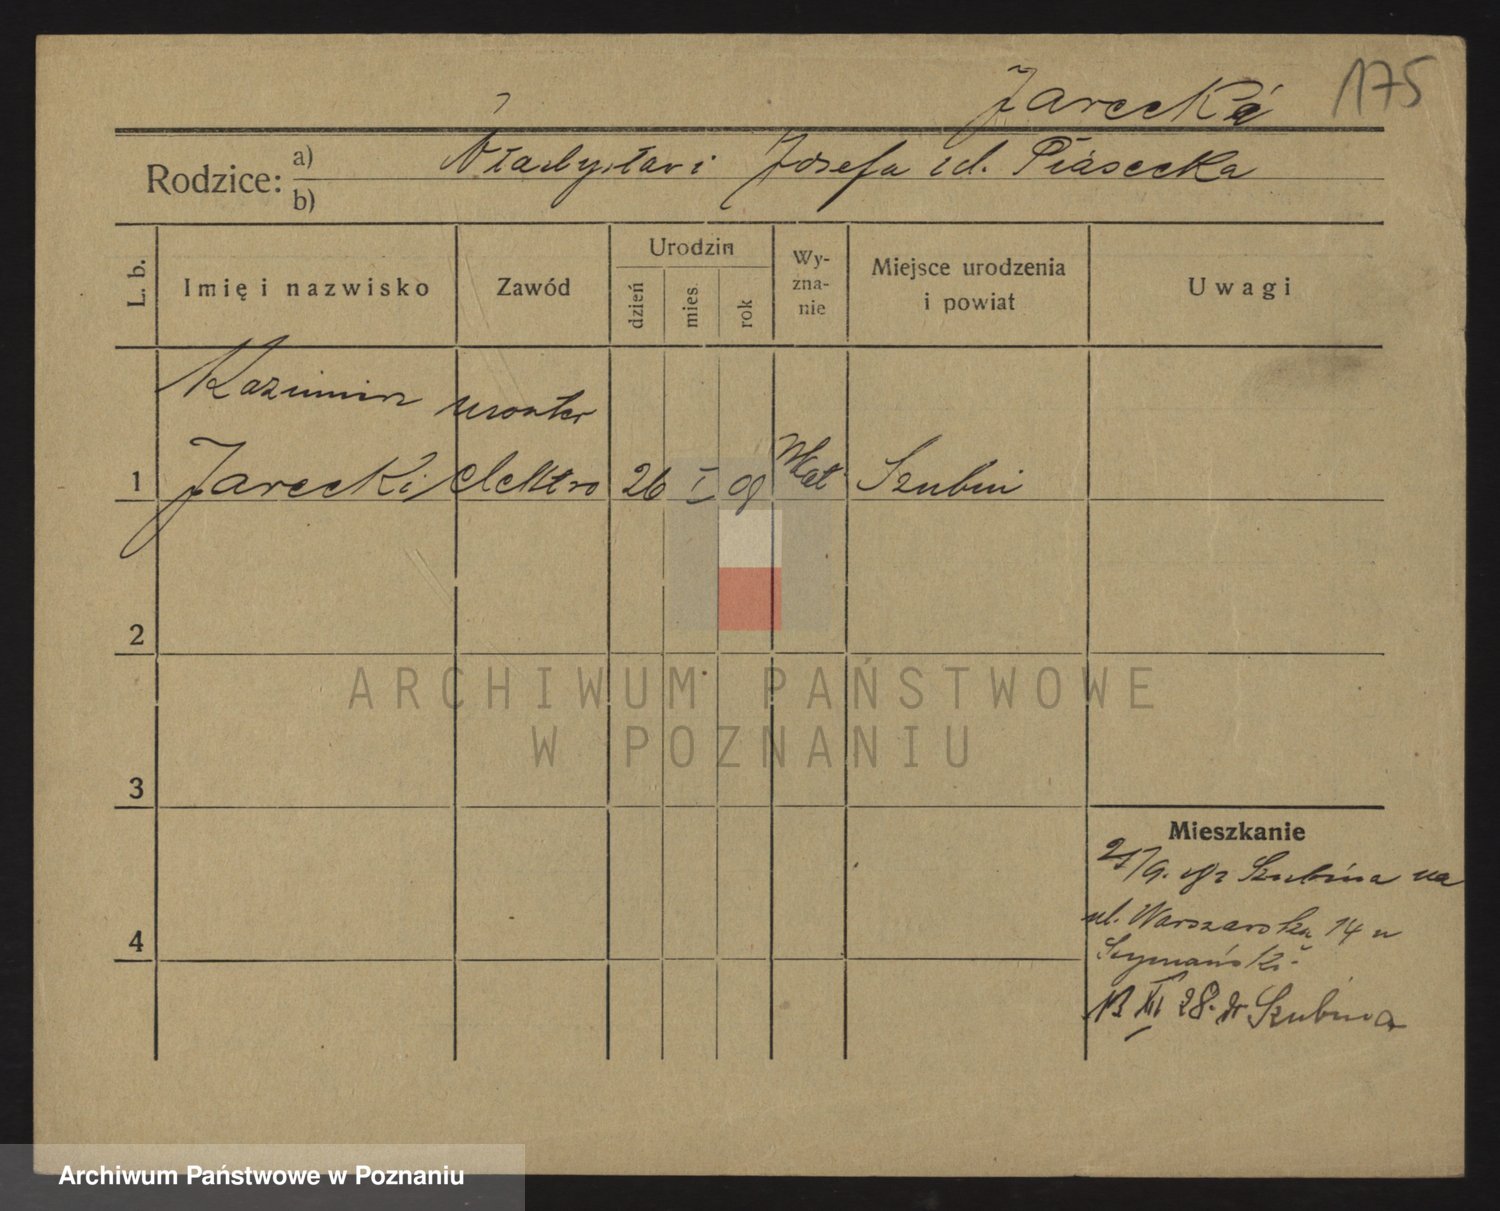 175
Jarecki
Rodzice: a) Władysław i Józefa zd. Piasecka
b)
L. b.
Imię i nazwisko
Zawód
Urodzin
dzień
mies.
rok
Wy-
zna-
nie
Miejsce urodzenia
i powiat
Uwagi
Kazimierz monter
1 Jarecki elektro 26 I 08 rkat Szubin
2
ARCHIWUM PAŃSTWOWE
W POZNANIU
3
Mieszkanie
21/9. z Szubina na
ul. Warszawska 14 u
4
Szymański
13 III 28. Szubina
Archiwum Państwowe w Poznaniu